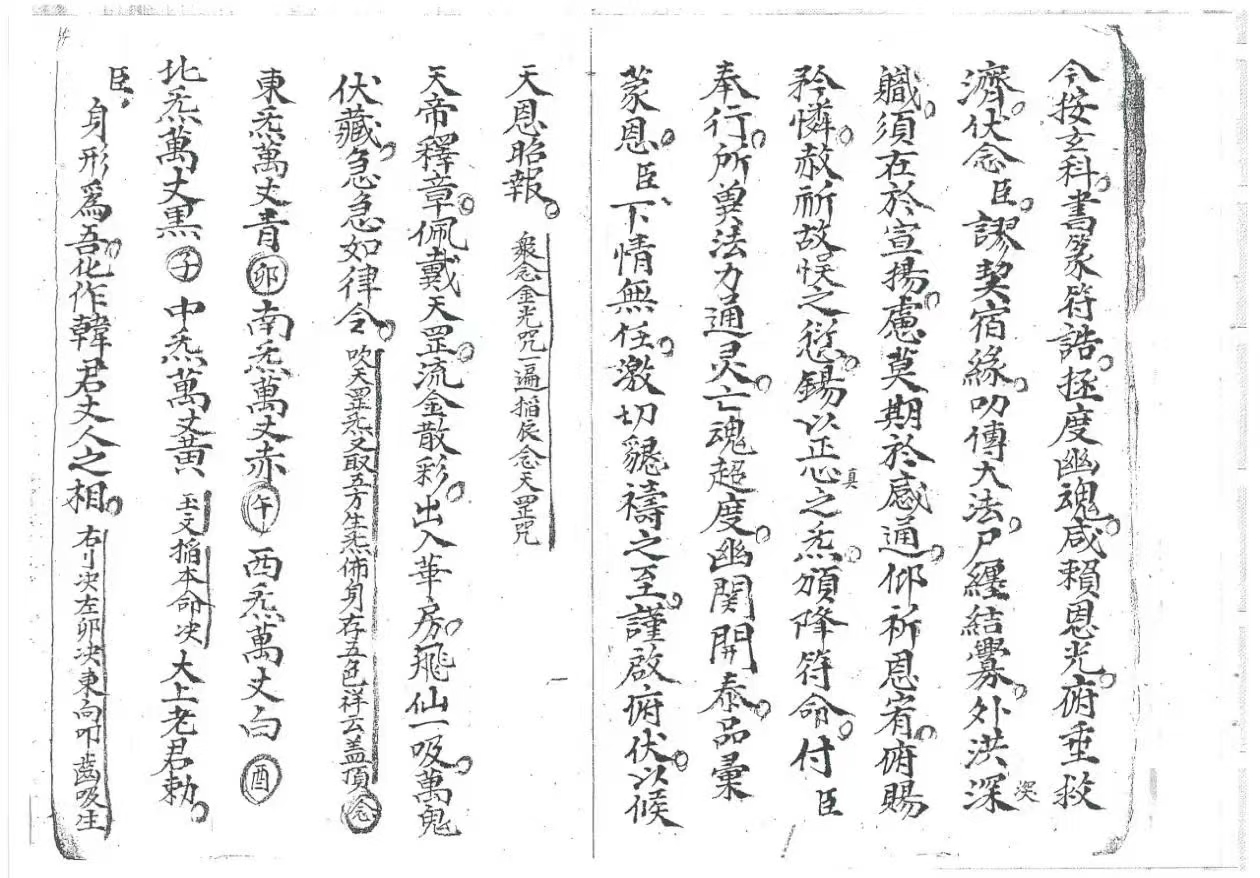 今按玄科。書篆符誥。拯度幽魂。咸賴恩光。俯垂救
濟。伏念臣。謬契宿緣。叨傳大法。尸纏結釁。外洪深
深
職。須在於宣揚。慮莫期於感通。仰祈恩宥。俯賜
矜憐。赦祈故悮之愆。錫以正心之炁。頒降符命。付臣
真
奉行。所兾法力通灵。亡魂超度。幽関開泰。品彙
蒙恩。臣下情無任。激切懇禱之至。謹啟俯伏。以候
天恩昭報。
衆念金光咒一遍掐辰念天罡咒
天帝釋章。佩戴天罡。流金散彩。出入華房。飛仙一吸。萬鬼
伏藏。急急如律令。
吹天罡炁又取五方生炁佈身存五色祥云盖頂念
東炁萬丈青卯南炁萬丈赤午西炁萬丈白酉
北炁萬丈黒子中炁萬丈黃
玉文掐本命决
大上老君勅。
臣，身形爲吾。化作韓君丈人之相。
右刂决左卯决東向叩齒吸生